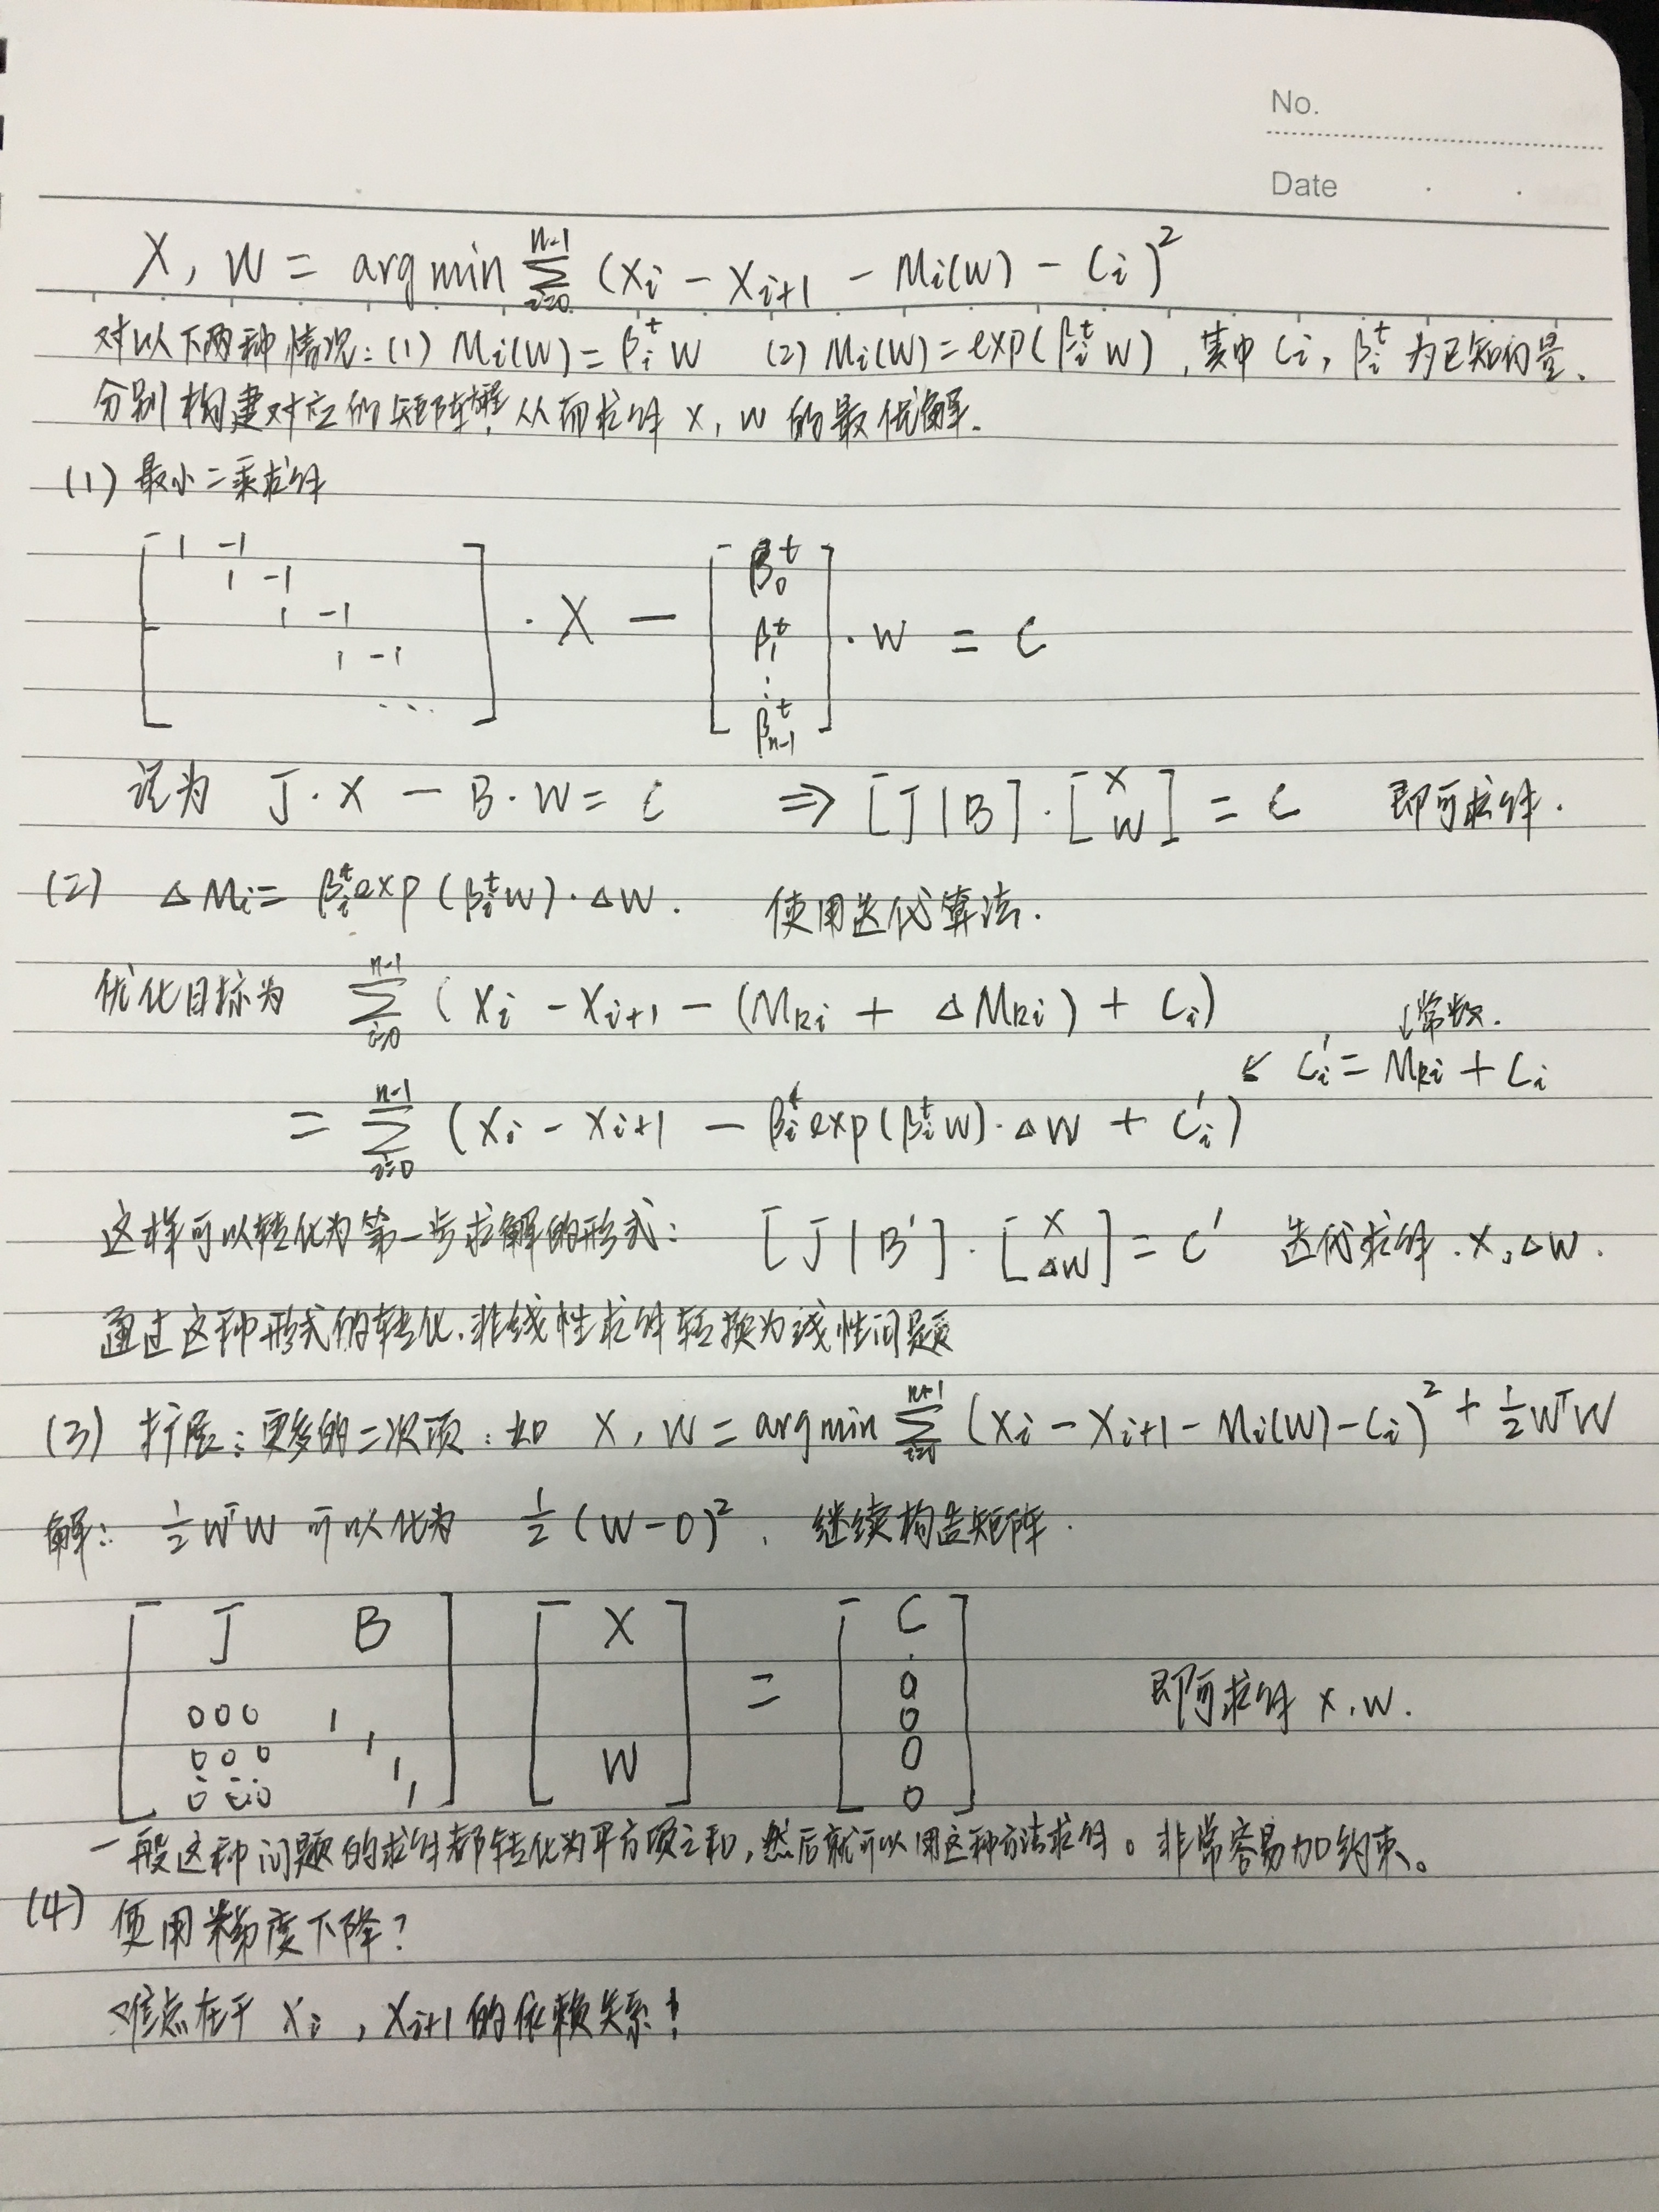 No.
Date
X, W = argmin ∑_{i=0}^{n-1} (X_i - X_{i+1} - M_i(W) - C_i)^2
对以下两种情况：(1) M_i(W) = β_i^t W (2) M_i(W) = exp(β_i^t W)，其中 C_i, β_i^t 为已知向量.
分别构建对应的矩阵，从而求解 X, W 的最优解.
(1) 最小二乘求解
[1 -1; 1 -1; 1 -1; 1 -1; ...] · X - [β_0^t; β_1^t; ⋮; β_{n-1}^t] · W = C
记为 J · X - B · W = C ⇒ [J | B] · [X; W] = C 即可求解.
(2) ΔM_i = β_i^t exp(β_i^t W) · ΔW. 使用迭代算法.
优化目标为 ∑_{i=0}^{n-1} (X_i - X_{i+1} - (M_{Ri} + ΔM_{Ri}) + C_i)
↓常数.
↙ C_i' = M_{Ri} + C_i
= ∑_{i=0}^{n-1} (X_i - X_{i+1} - β_i^t exp(β_i^t W) · ΔW + C_i')
这样可以转化为第一步求解的形式： [J | B'] · [X; ΔW] = C' 迭代求解. X, ΔW.
通过这种形式的转化，非线性求解转换为线性问题
(3) 扩展：更多的二次项：如 X, W = argmin ∑_{i=0}^{n-1} (X_i - X_{i+1} - M_i(W) - C_i)^2 + ½ W^T W
解： ½ W^T W 可以化为 ½ (W - 0)^2，继续构造矩阵.
[J B; 0 0 0 1; 0 0 0 1; 0 ... 0 1, 1] [X; W] = [C; 0; 0; 0; 0] 即可求解 X, W.
一般这种问题的求解都转化为平方项之和，然后就可以用这种方法求解。非常容易加约束。
(4) 使用梯度下降？
难点在于 X_i, X_{i+1} 的依赖关系！